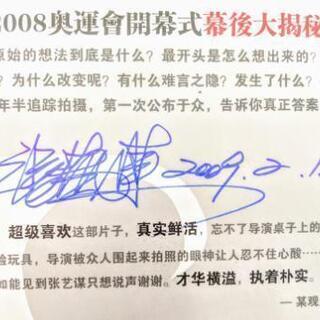 2008奧運會開幕式幕後大揭秘
原始的想法到底是什么？最开头是怎么想出来的？
为什么改变呢？有什么难言之隐？发生了什么？
年半追踪拍摄，第一次公布于众，告诉你真正答案
2009.2.1
超级喜欢这部片子，真实鲜活，忘不了导演桌子上的
验玩具，导演被众人围起来拍照的眼神让人忍不住心酸……
如能见到张艺谋只想说声谢谢。才华横溢，执着朴实。
—某观